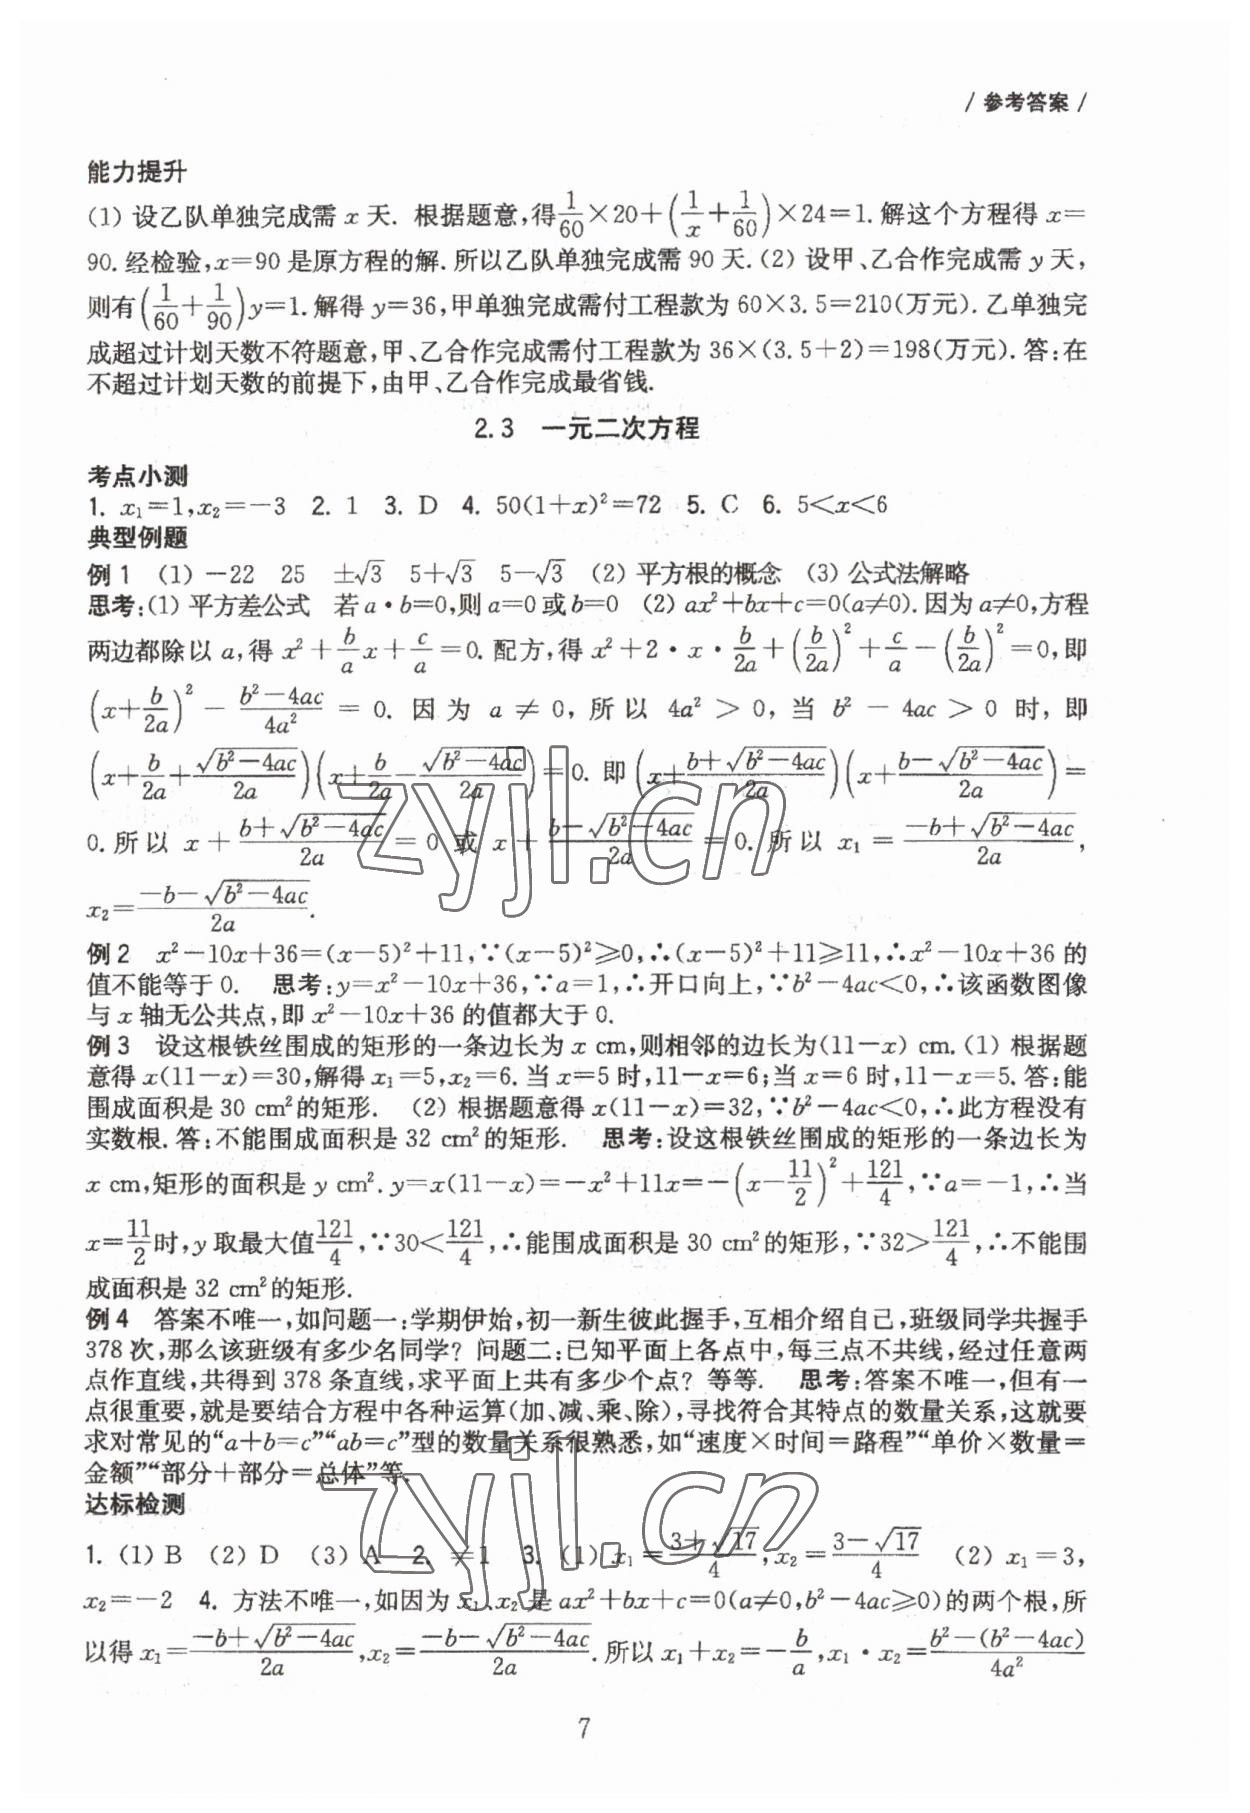 / 参考答案 /
能力提升
(1) 设乙队单独完成需 x 天. 根据题意,得1/60×20+(1/x+1/60)×24=1. 解这个方程得 x=
90. 经检验,x=90 是原方程的解. 所以乙队单独完成需 90 天. (2) 设甲、乙合作完成需 y 天,
则有(1/60+1/90)y=1. 解得 y=36,甲单独完成需付工程款为 60×3.5=210(万元). 乙单独完
成超过计划天数不符题意,甲、乙合作完成需付工程款为 36×(3.5+2)=198(万元). 答:在
不超过计划天数的前提下,由甲、乙合作完成最省钱.
2.3 一元二次方程
考点小测
1. x₁=1,x₂=−3 2. 1 3. D 4. 50(1+x)²=72 5. C 6. 5<x<6
典型例题
例 1 (1) −22 25 ±√3 5+√3 5−√3 (2) 平方根的概念 (3) 公式法解略
思考:(1) 平方差公式 若 a·b=0,则 a=0 或 b=0 (2) ax²+bx+c=0(a≠0). 因为 a≠0,方程
两边都除以 a,得 x²+b/a x+c/a=0. 配方,得 x²+2·x·b/2a+(b/2a)²+c/a−(b/2a)²=0,即
(x+b/2a)²−(b²−4ac)/4a²=0. 因为 a≠0,所以 4a²>0,当 b²−4ac>0 时,即
(x+b/2a+√(b²−4ac)/2a)(x+b/2a−√(b²−4ac)/2a)=0. 即(x+(b+√(b²−4ac))/2a)(x+(b−√(b²−4ac))/2a)=
0. 所以 x+(b+√(b²−4ac))/2a=0 或 x+(b−√(b²−4ac))/2a=0. 所以 x₁=(−b+√(b²−4ac))/2a,
x₂=(−b−√(b²−4ac))/2a.
例 2 x²−10x+36=(x−5)²+11,∵(x−5)²≥0,∴(x−5)²+11≥11,∴x²−10x+36 的
值不能等于 0. 思考:y=x²−10x+36,∵a=1,∴开口向上,∵b²−4ac<0,∴该函数图像
与 x 轴无公共点,即 x²−10x+36 的值都大于 0.
例 3 设这根铁丝围成的矩形的一条边长为 x cm,则相邻的边长为(11−x) cm. (1) 根据题
意得 x(11−x)=30,解得 x₁=5,x₂=6. 当 x=5 时,11−x=6;当 x=6 时,11−x=5. 答:能
围成面积是 30 cm²的矩形. (2) 根据题意得 x(11−x)=32,∵b²−4ac<0,∴此方程没有
实数根. 答:不能围成面积是 32 cm²的矩形. 思考:设这根铁丝围成的矩形的一条边长为
x cm,矩形的面积是 y cm². y=x(11−x)=−x²+11x=−(x−11/2)²+121/4,∵a=−1,∴当
x=11/2时,y 取最大值121/4,∵30<121/4,∴能围成面积是 30 cm²的矩形,∵32>121/4,∴不能围
成面积是 32 cm²的矩形.
例 4 答案不唯一,如问题一:学期伊始,初一新生彼此握手,互相介绍自己,班级同学共握手
378 次,那么该班级有多少名同学? 问题二:已知平面上各点中,每三点不共线,经过任意两
点作直线,共得到 378 条直线,求平面上共有多少个点? 等等. 思考:答案不唯一,但有一
点很重要,就是要结合方程中各种运算(加、减、乘、除),寻找符合其特点的数量关系,这就要
求对常见的“a+b=c”“ab=c”型的数量关系很熟悉,如“速度×时间=路程”“单价×数量=
金额”“部分+部分=总体”等.
达标检测
1. (1) B (2) D (3) A 2. ≠1 3. (1) x₁=(3+√17)/4,x₂=(3−√17)/4 (2) x₁=3,
x₂=−2 4. 方法不唯一,如因为 x₁、x₂ 是 ax²+bx+c=0(a≠0,b²−4ac≥0)的两个根,所
以得 x₁=(−b+√(b²−4ac))/2a,x₂=(−b−√(b²−4ac))/2a. 所以 x₁+x₂=−b/a,x₁·x₂=(b²−(b²−4ac))/4a²
7
zyjl.cn
zyjl.cn